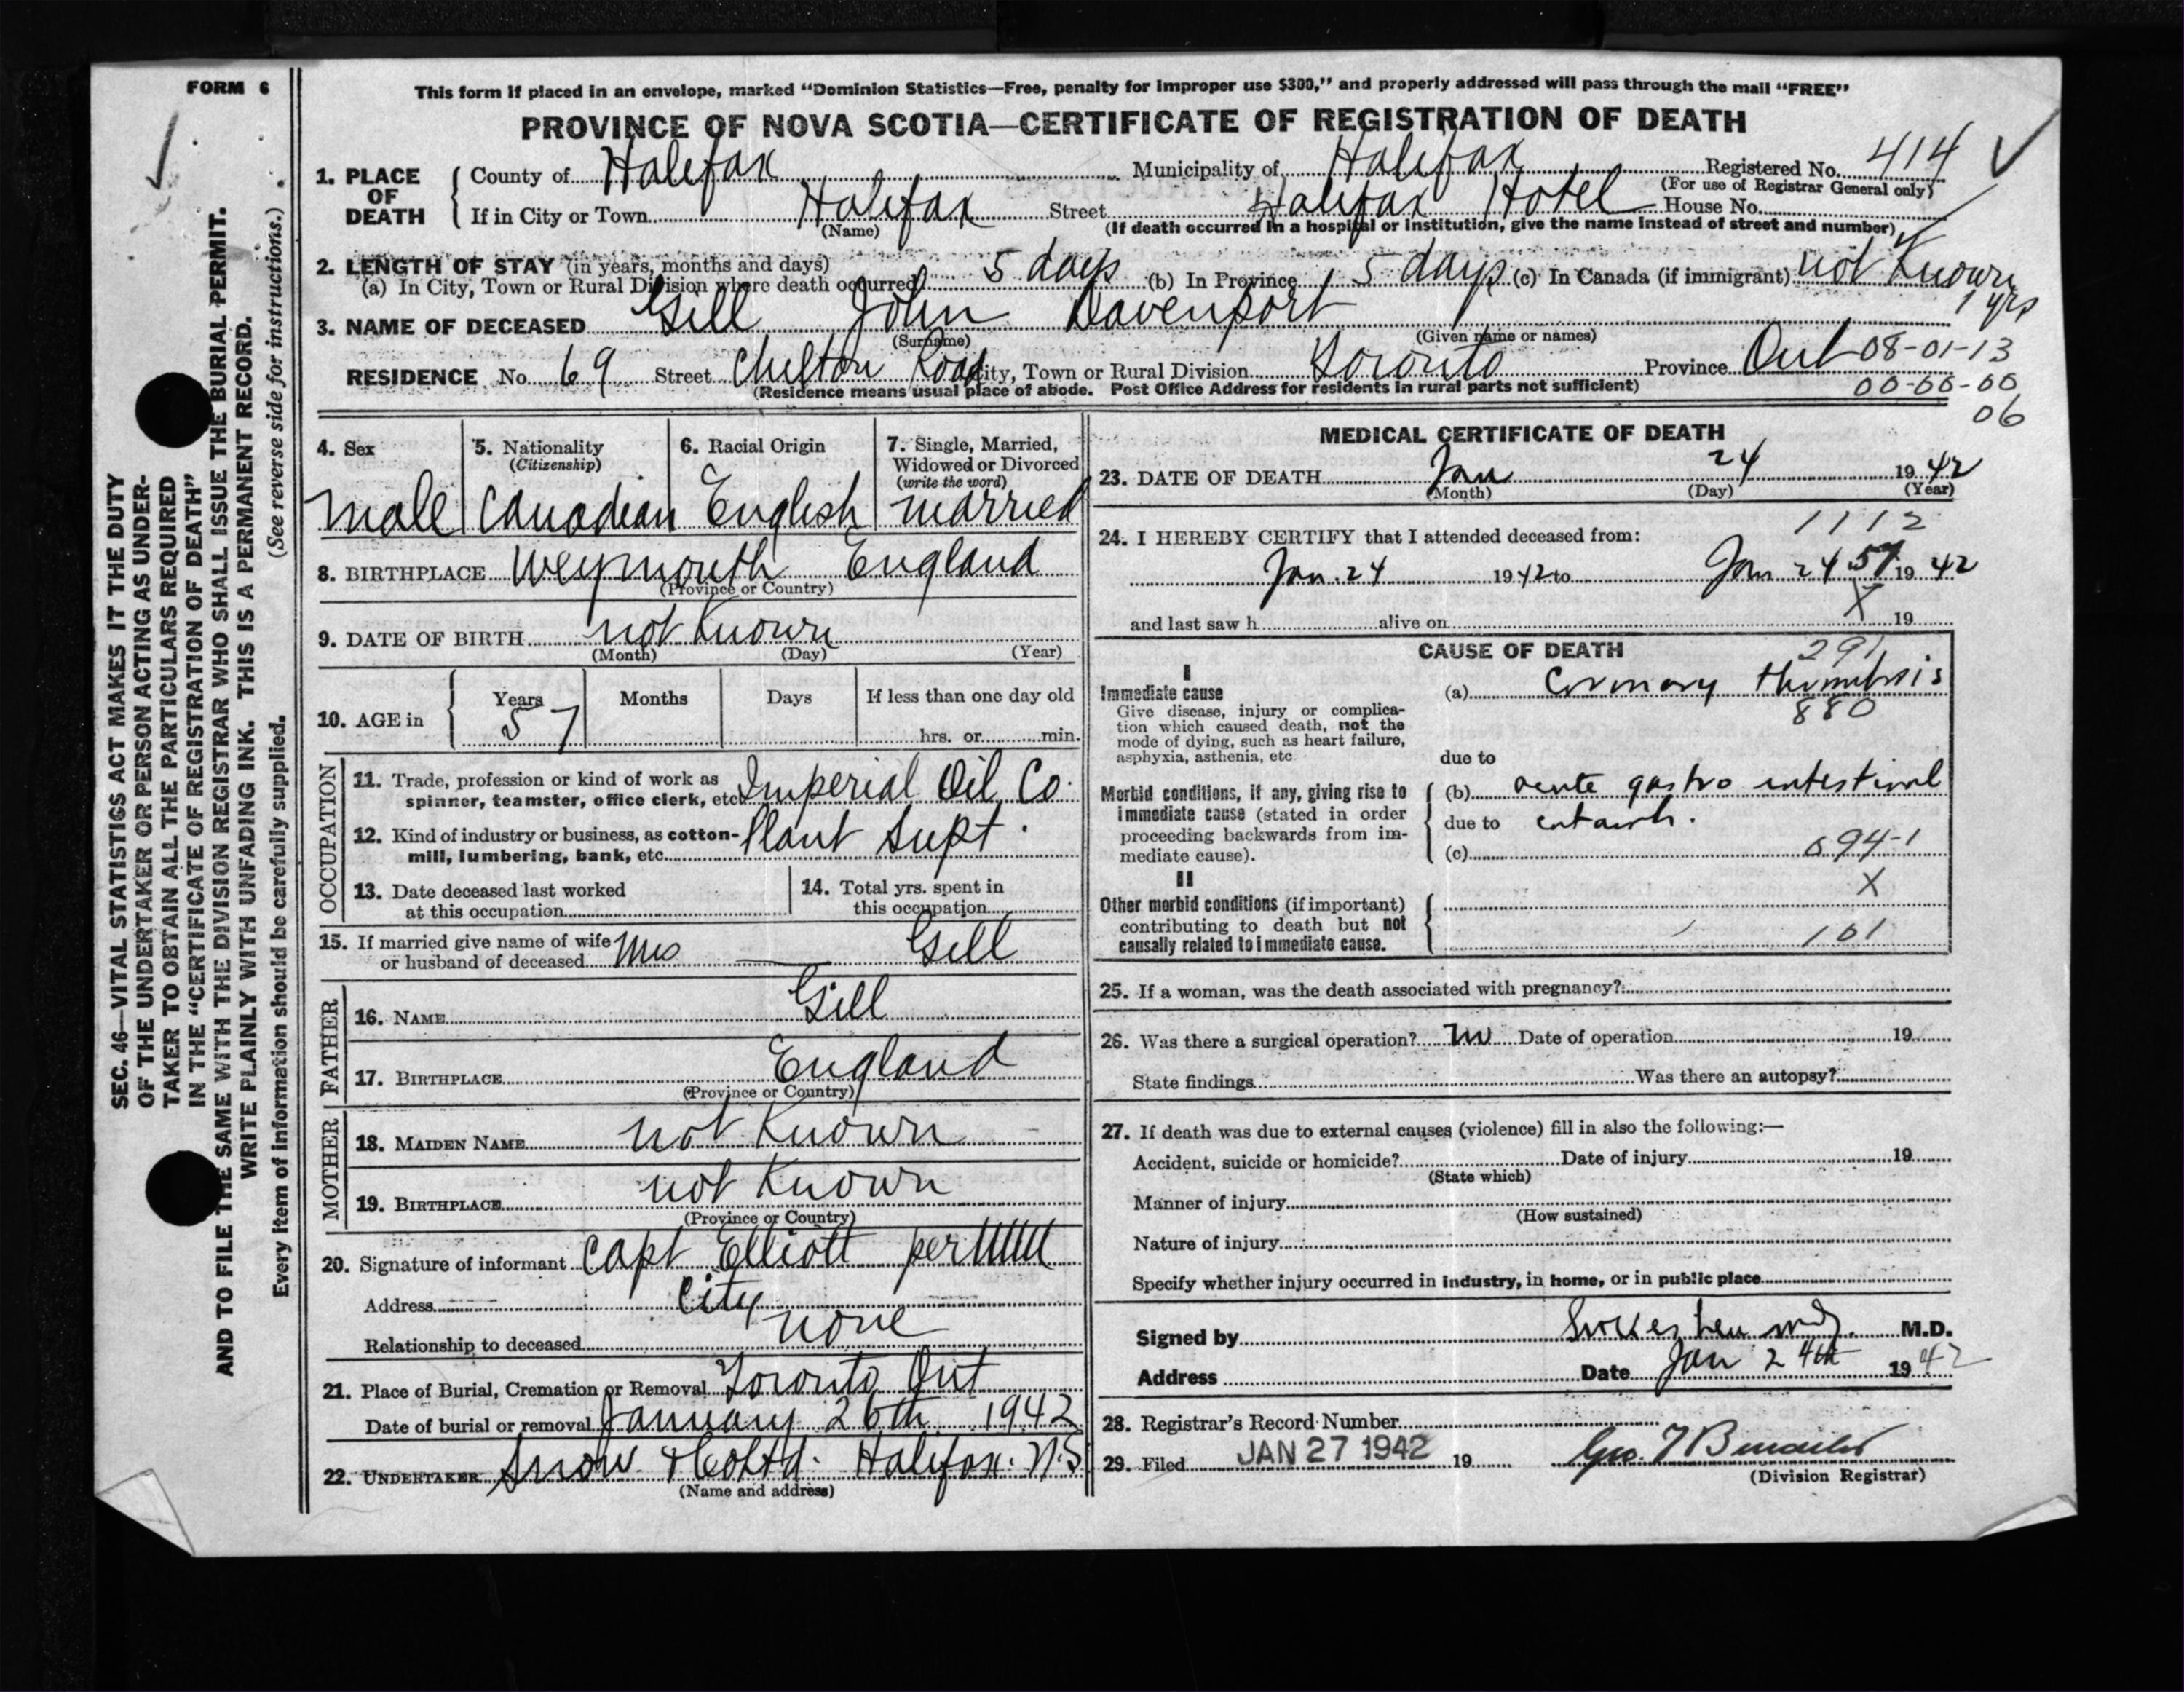 FORM 6
This form if placed in an envelope, marked "Dominion Statistics—Free, penalty for improper use $300," and properly addressed will pass through the mail "FREE"
PROVINCE OF NOVA SCOTIA—CERTIFICATE OF REGISTRATION OF DEATH
1. PLACE OF DEATH
County of Halifax Municipality of Halifax Registered No. 414
(For use of Registrar General only)
If in City or Town Halifax Street Halifax Hotel House No.
(Name) (If death occurred in a hospital or institution, give the name instead of street and number)
2. LENGTH OF STAY (in years, months and days)
(a) In City, Town or Rural Division where death occurred 5 days (b) In Province 5 days (c) In Canada (if immigrant) not Known
1 yrs
3. NAME OF DECEASED Gill John Davenport
(Surname) (Given name or names)
RESIDENCE No. 69 Street Chilton Road City, Town or Rural Division Toronto Province Ont 08-01-13
(Residence means usual place of abode. Post Office Address for residents in rural parts not sufficient) 00-00-00
06
4. Sex
male
5. Nationality
(Citizenship)
Canadian
6. Racial Origin
English
7. Single, Married,
Widowed or Divorced
(write the word)
married
8. BIRTHPLACE Weymouth England
(Province or Country)
9. DATE OF BIRTH not Known
(Month) (Day) (Year)
10. AGE in Years Months Days If less than one day old
57 hrs. or min.
OCCUPATION
11. Trade, profession or kind of work as
spinner, teamster, office clerk, etc Imperial Oil Co.
12. Kind of industry or business, as cotton-
mill, lumbering, bank, etc. Plant Supt.
13. Date deceased last worked
at this occupation
14. Total yrs. spent in
this occupation
15. If married give name of wife
or husband of deceased Mrs — Gill
FATHER
16. NAME Gill
17. BIRTHPLACE England
(Province or Country)
MOTHER
18. MAIDEN NAME not Known
19. BIRTHPLACE not Known
(Province or Country)
20. Signature of informant Capt Elliott per
Address City
Relationship to deceased none
21. Place of Burial, Cremation or Removal Toronto Ont
Date of burial or removal January 26th 1942
22. UNDERTAKER Snow & Co Ltd. Halifax. N.S
(Name and address)
MEDICAL CERTIFICATE OF DEATH
23. DATE OF DEATH Jan 24 1942
(Month) (Day) (Year)
1112
24. I HEREBY CERTIFY that I attended deceased from:
Jan. 24 1942 to Jan 24 57 1942
X
and last saw h alive on 19
CAUSE OF DEATH
291
I
Immediate cause
Give disease, injury or complica-
tion which caused death, not the
mode of dying, such as heart failure,
asphyxia, asthenia, etc
(a) Coronary thrombosis
880
due to
Morbid conditions, if any, giving rise to
immediate cause (stated in order
proceeding backwards from im-
mediate cause).
(b) acute gastro intestinal
due to catarrh.
(c) 694-1
X
II
Other morbid conditions (if important)
contributing to death but not
causally related to immediate cause.
101
25. If a woman, was the death associated with pregnancy?
26. Was there a surgical operation? no Date of operation 19
State findings Was there an autopsy?
27. If death was due to external causes (violence) fill in also the following:—
Accident, suicide or homicide? Date of injury 19
(State which)
Manner of injury
(How sustained)
Nature of injury
Specify whether injury occurred in industry, in home, or in public place
Signed by M.D.
Address Date Jan 24th 1942
28. Registrar's Record Number
29. Filed JAN 27 1942 19
(Division Registrar)
SEC. 46—VITAL STATISTICS ACT MAKES IT THE DUTY
OF THE UNDERTAKER OR PERSON ACTING AS UNDER-
TAKER TO OBTAIN ALL THE PARTICULARS REQUIRED
IN THE "CERTIFICATE OF REGISTRATION OF DEATH"
AND TO FILE THE SAME WITH THE DIVISION REGISTRAR WHO SHALL ISSUE THE BURIAL PERMIT.
WRITE PLAINLY WITH UNFADING INK. THIS IS A PERMANENT RECORD.
Every item of information should be carefully supplied. (See reverse side for instructions.)